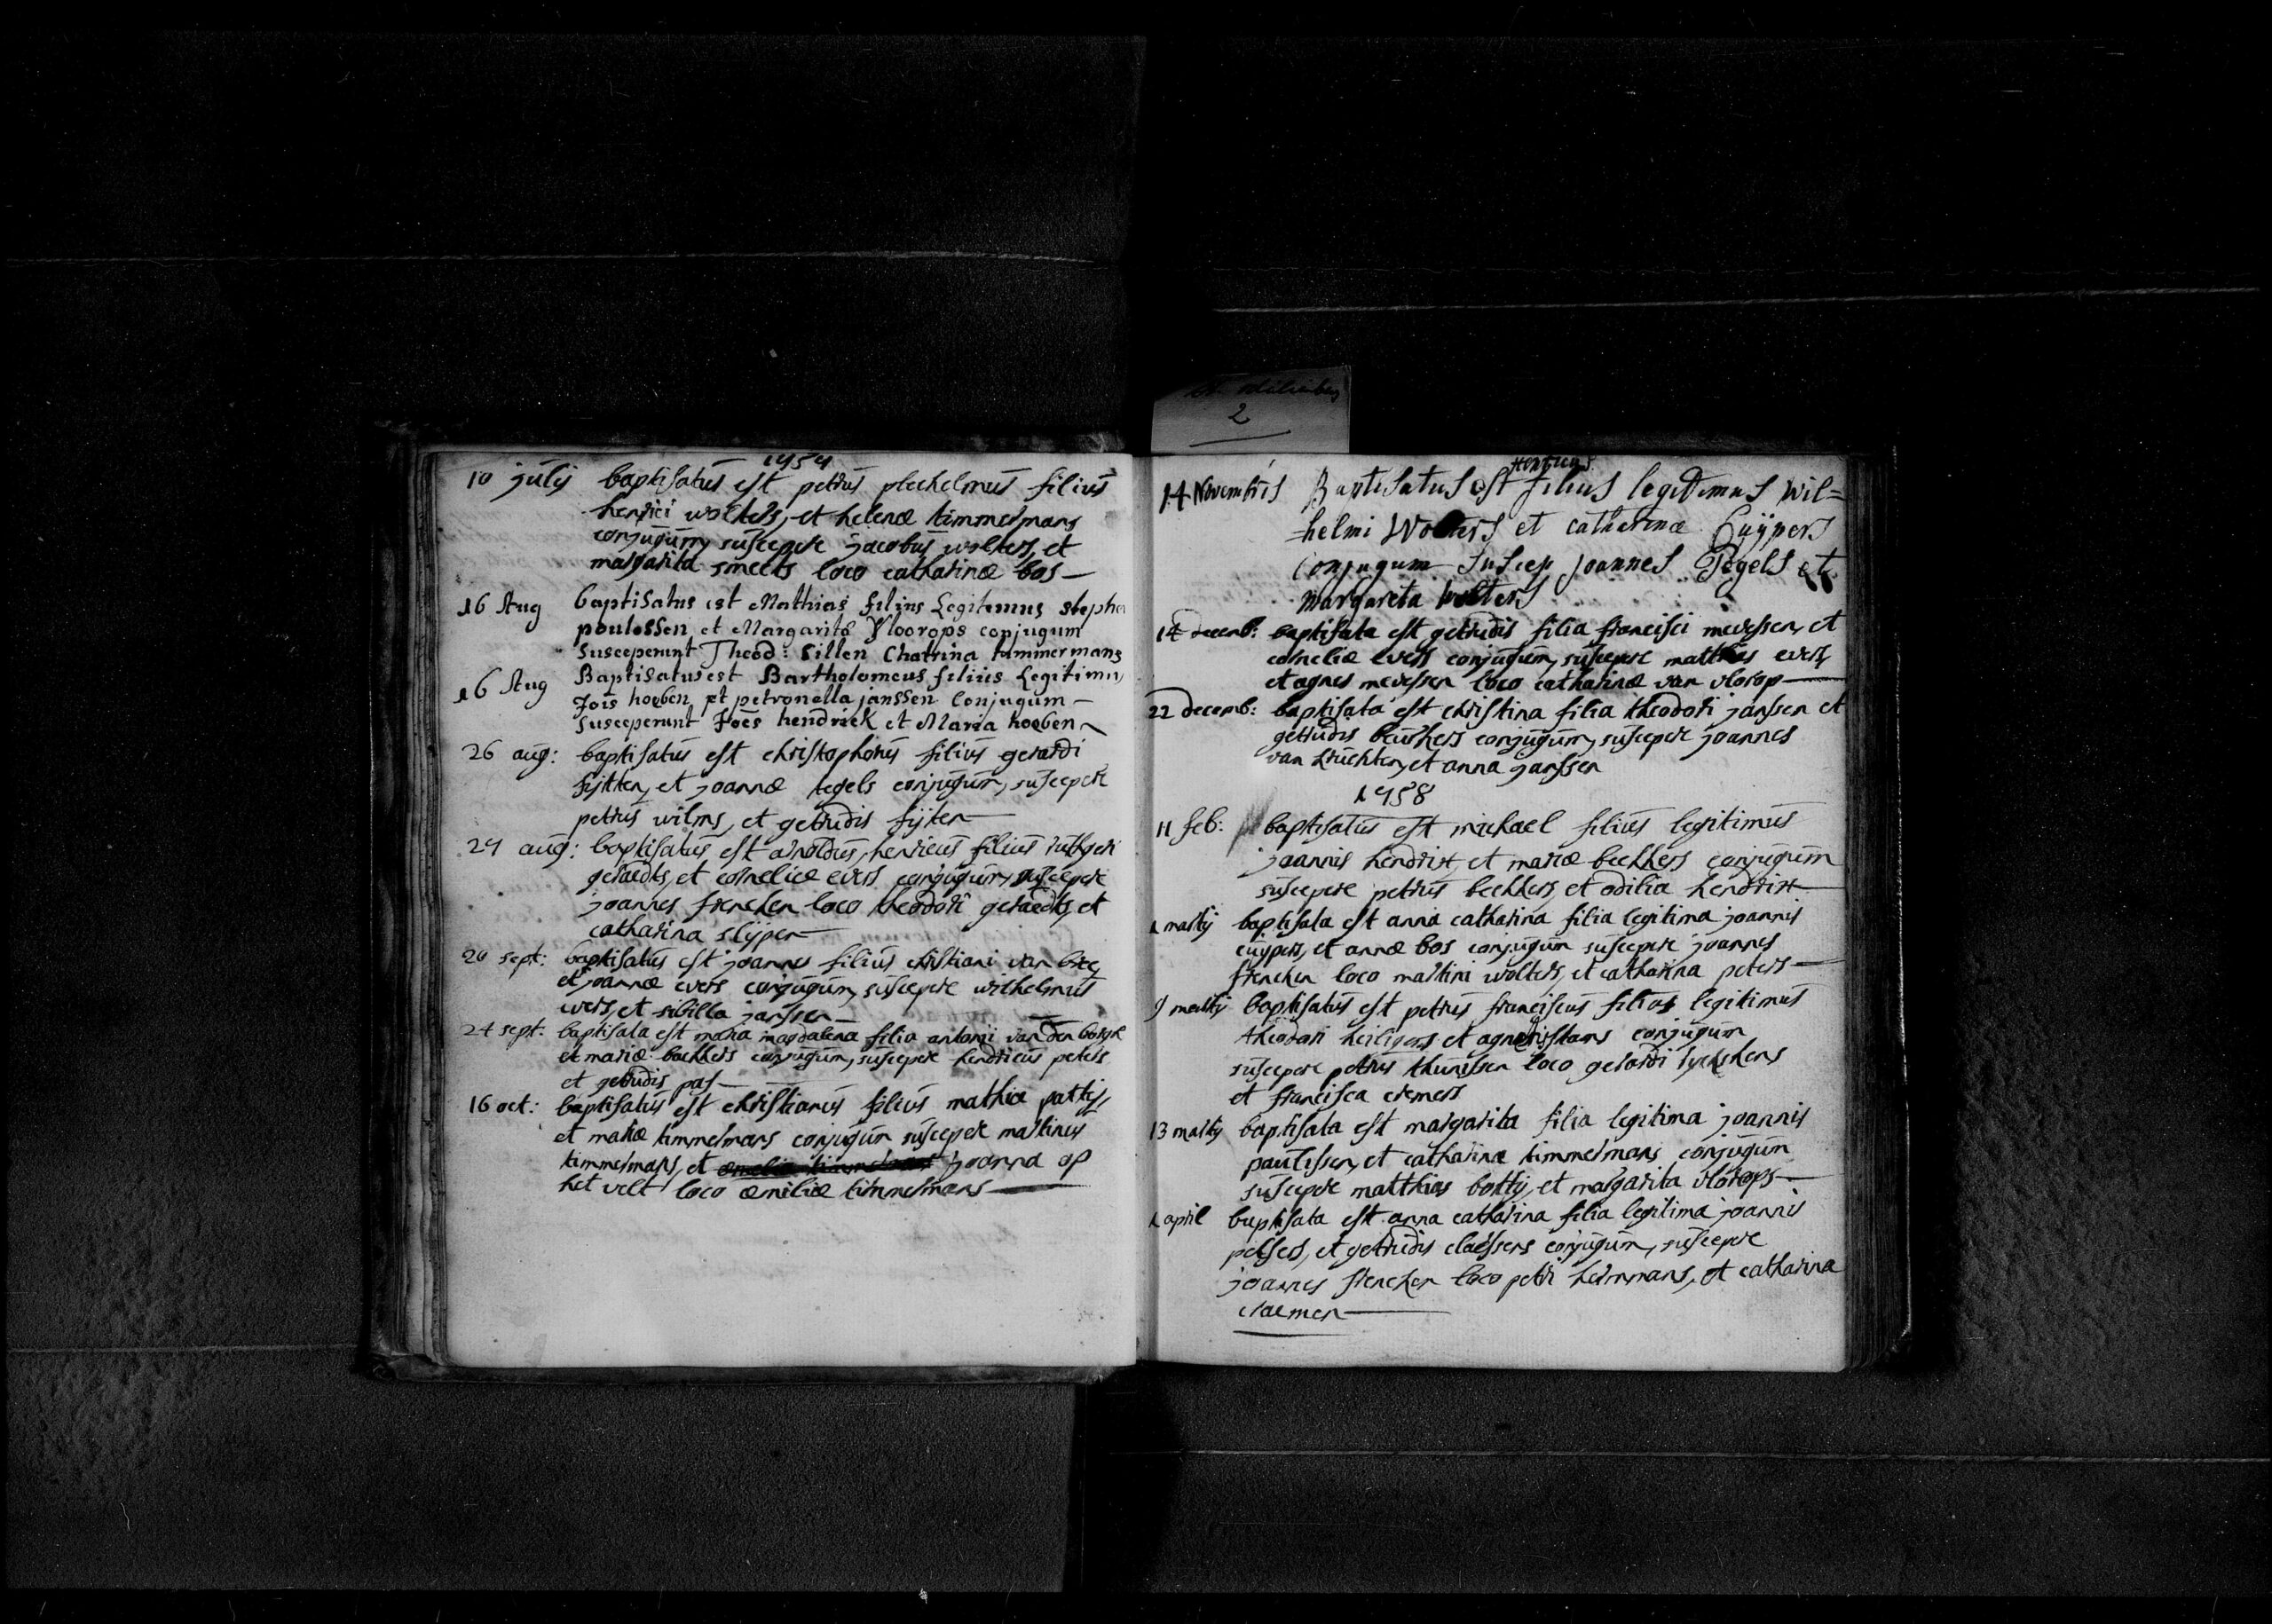 1757
10 julij baptisatus est petrus plechelmus filius
henrici wolters, et helenæ timmermans
conjugum, suscepere jacobus wolters, et
margarita smeets loco catharinæ bos —
16 Aug Baptisatus est Mathias filius Legitimus stepha
poulossen et Margarita Vloorops conjugum
Susceperunt Theod: Sillen Chatrina timmermans
16 Aug Baptisatus est Bartholomeus filiiis Legitimu,
Jois hoeben et petronella janssen Conjugum —
Susceperunt Joes hendrick et Maria hoeben
26 aug: baptisatus est christophorus filius gerardi
fijtten, et joannæ tegels conjugum, suscepere
petrus wilms, et getrudis fijten —
29 aug: baptisatus est arnoldus, henricus filius rutgeri
geraedts, et corneliæ evers conjugum, suscepere
joannes frencken loco theodori geraedts, et
catharina slijpen —
20 sept: baptisatus est joannes filius christiani van bree,
et joannæ evers conjugum, suscepere wilhelmus
evers, et sibilla janssen —
24 sept: baptisata est maria magdalena filia antonii van den borgh
et mariæ beckkers conjugum, suscepere hendricus peters
et getrudis pas —
16 oct: baptisatus est christianus filius mathiæ pattij,
et mariæ timmermans conjugum suscepere martinus
timmermans, et joanna op
het velt loco æmiliæ timmermans —
2
henricus
14 Novembris Baptisatus est filius legitimus Wil=
=helmi Wolters et catharinæ Cuÿpers
Conjugum Suscep joannes Tegels et
Margareta Wolters
14 decemb: baptisata est getrudis filia francisci mevissen, et
corneliæ evers conjugum, suscepere matthias evers,
et agnes mevissen loco catharinæ van vlorop —
22 decemb: baptisata est christina filia theodori janssen et
getrudis beurskens conjugum, suscepere joannes
van kruchten, et anna janssen
1758
11 feb: baptisatus est michael filius legitimus
joannis hendrix et mariæ beckkers conjugum
suscepere petrus beckkers, et odilia hendrix —
1 martij baptisata est anna catharina filia legitima joannis
cuÿpers, et annæ bos conjugum suscepere joannes
frencken loco martini wolters, et catharina peters —
9 martij baptisatus est petrus franciscus filius legitimus
theodori heiligers et agnetis conjugum
suscepere petrus thunissen loco gerardi
et francisca cremers
13 martij baptisata est margarita filia legitima joannis
paulissen, et catharinæ timmermans conjugum
suscepere matthias bottij, et margarita vlorops —
1 april baptisata est anna catharina filia legitima joannis
pelsers, et getrudis claessens conjugum, suscepere
joannes frencken loco petri heimmans, et catharina
craemer —